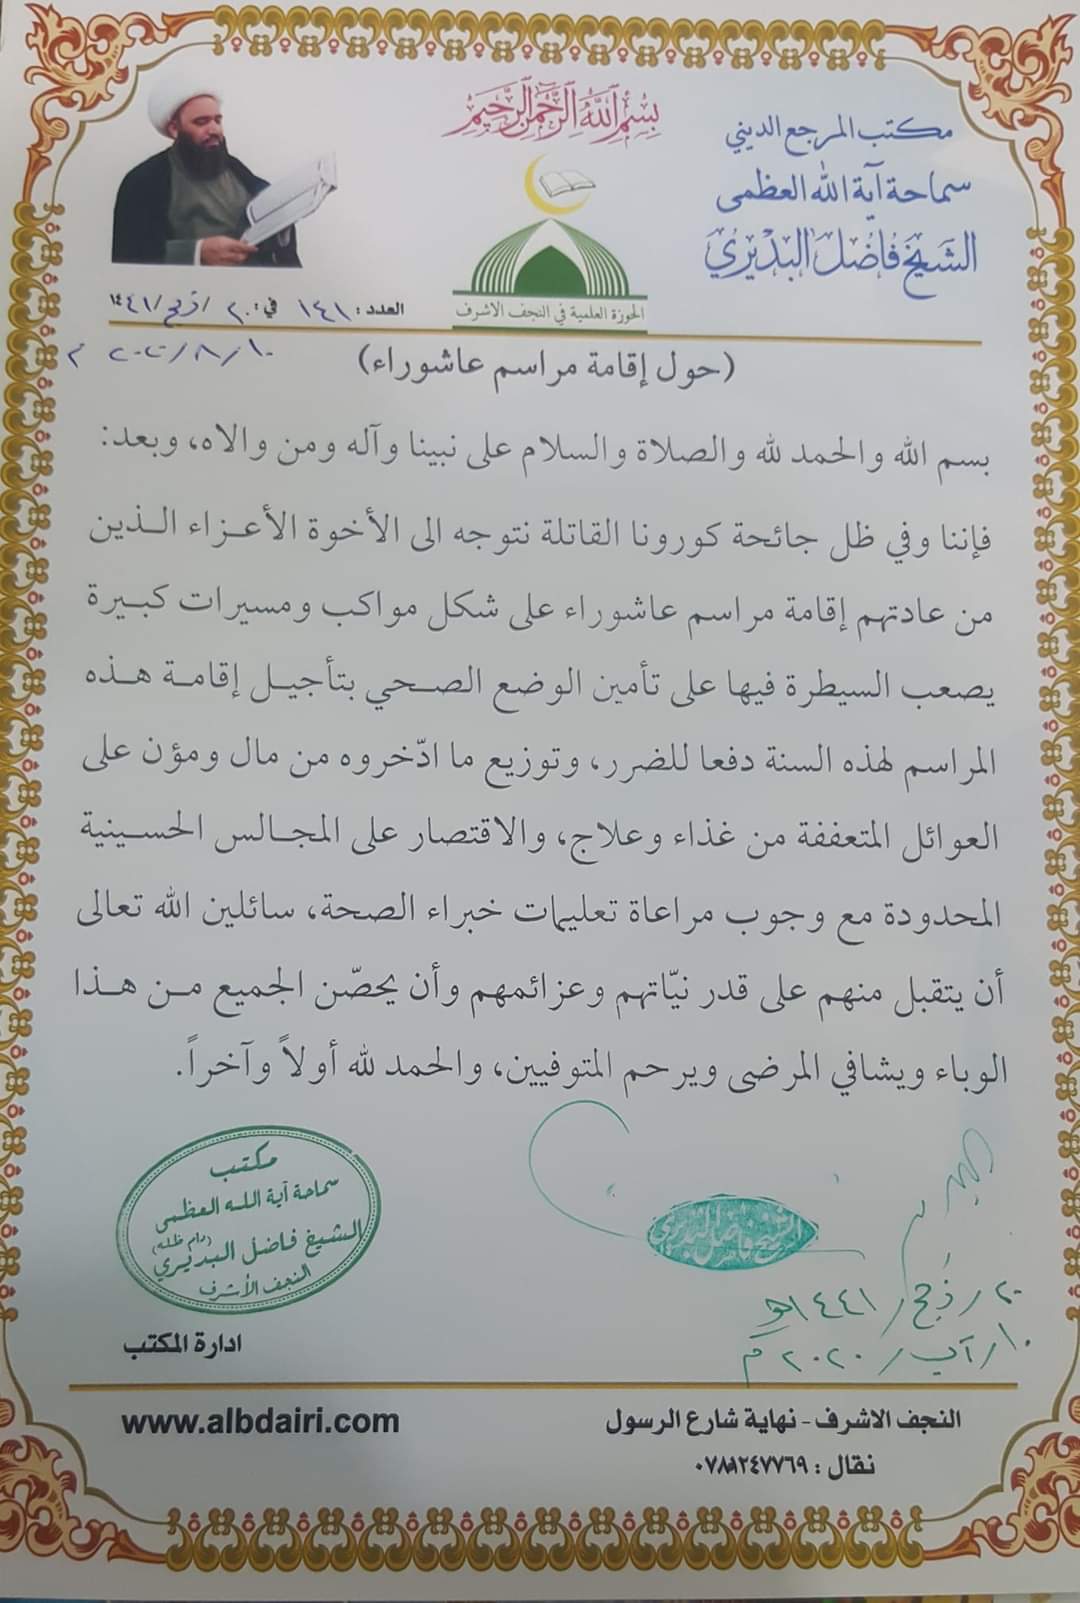 بسم الله الرحمن الرحيم
مكتب المرجع الديني
سماحة آية الله العظمى
الشيخ فاضل البديري
الحوزة العلمية في النجف الاشرف
العدد : ١٤١ في : ٢٠ / ذ حج / ١٤٤١
١٠ / ٨ / ٢٠٢٠ م
(حول إقامة مراسم عاشوراء)
بسم الله والحمد لله والصلاة والسلام على نبينا وآله ومن والاه، وبعد:
فإننا وفي ظل جائحة كورونا القاتلة نتوجه الى الأخوة الأعزاء الذين
من عادتهم إقامة مراسم عاشوراء على شكل مواكب ومسيرات كبيرة
يصعب السيطرة فيها على تأمين الوضع الصحي بتأجيل إقامة هذه
المراسم لهذه السنة دفعا للضرر، وتوزيع ما ادّخروه من مال ومؤن على
العوائل المتعففة من غذاء وعلاج، والاقتصار على المجالس الحسينية
المحدودة مع وجوب مراعاة تعليمات خبراء الصحة، سائلين الله تعالى
أن يتقبل منهم على قدر نيّاتهم وعزائمهم وأن يحصّن الجميع من هذا
الوباء ويشافي المرضى ويرحم المتوفيين، والحمد لله أولاً وآخراً.
مكتب
سماحة آية الله العظمى
الشيخ فاضل البديري
(دام ظله)
النجف الأشرف
الشيخ فاضل البديري
٢٠ / ذ حج / ١٤٤١ هـ
١٠ / آب / ٢٠٢٠ م
ادارة المكتب
www.albdairi.com
النجف الاشرف - نهاية شارع الرسول
نقال :